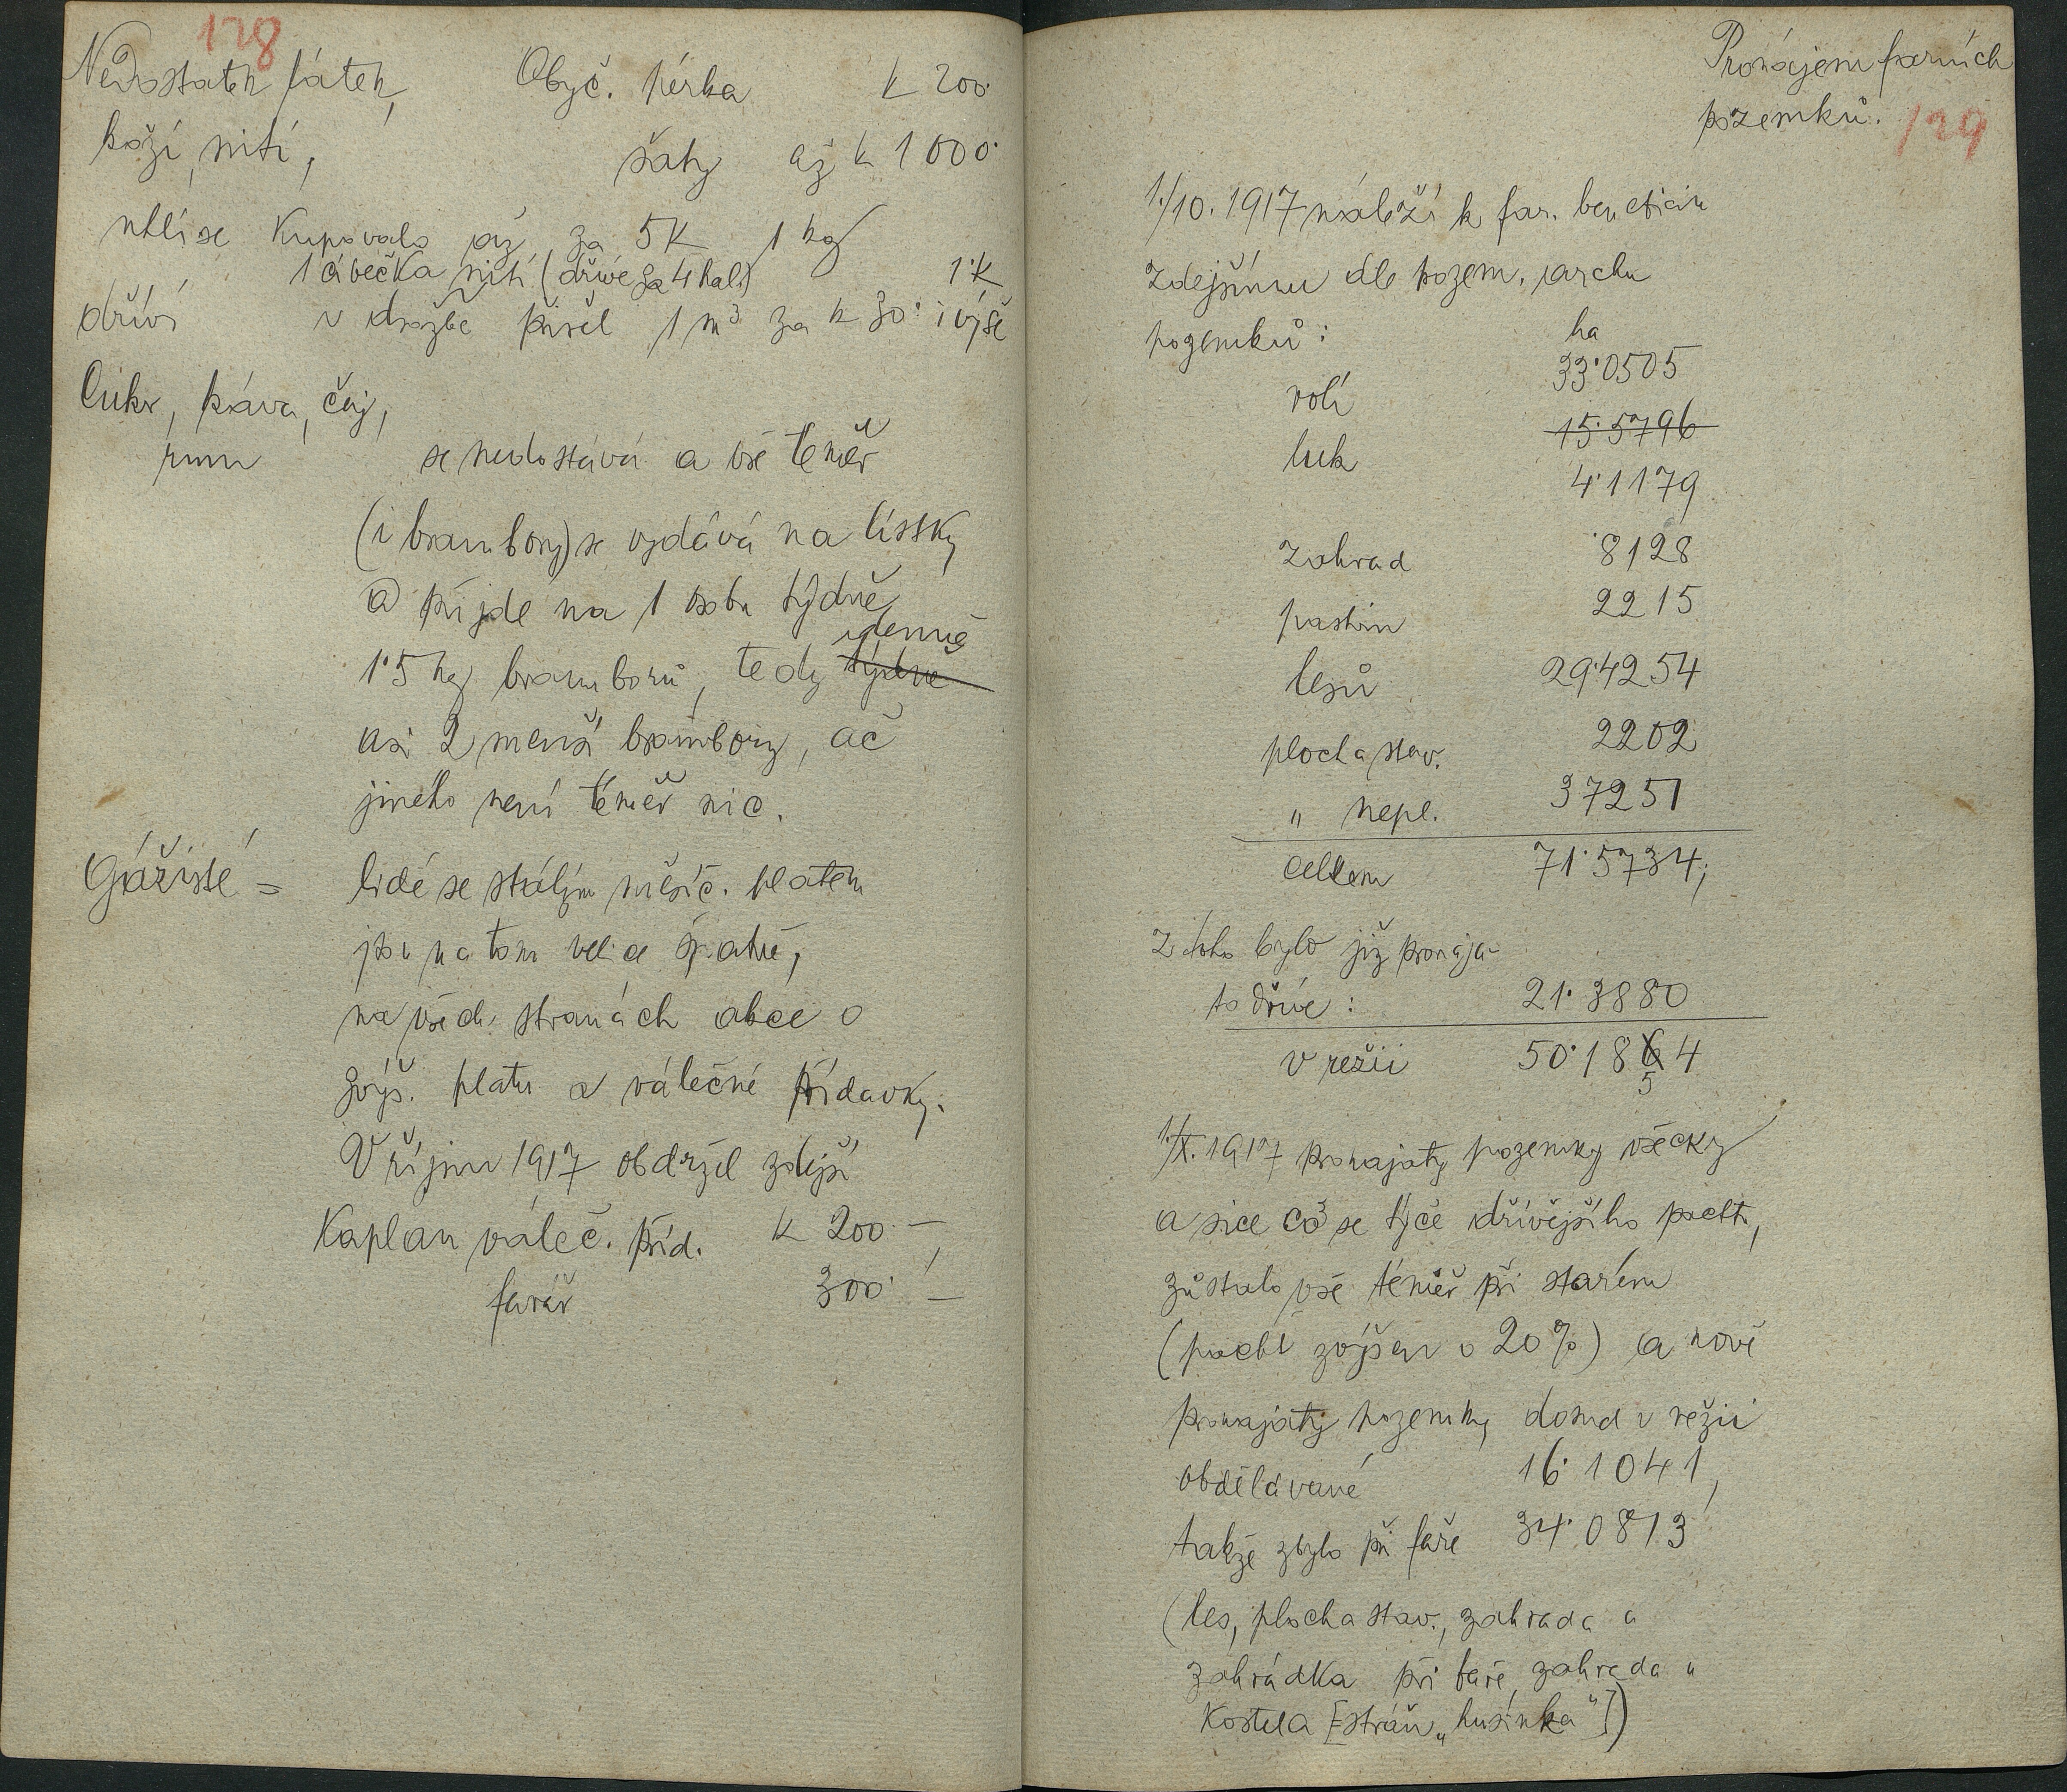 128
Nedostatek látek, Obyč. pérka K 200·
koží, nití, šaty až k 1000·
uhlí se kupovalo až za 5K 1 kg
1 cívečka nití (dříve za 4 hal.) 1·K
dříví v dražbě přišel 1 m³ za K 30· i výše
Cukr, káva, čaj,
rum se nedostává a vše téměř
(i brambory) se vydává na lístky
a přijde na 1 osobu týdně
1·5 kg bramborů, tedy týdně denně
asi 2 menší brambory, ač
jiného není téměř nic.
Gážisté = lidé se stálým měsíč. platem
jsou na tom velice špatně,
na všech stranách akce o
zvýš. platu a válečné přídavky.
V říjnu 1917 obdržel zdejší
Kaplan váleč. příd. K 200·—,
farář 300·—
Pronájem farních
pozemků. 129
1./10. 1917 náleží k far. beneficiu
zdejšímu dle pozem. archu
pozemků: ha
rolí 33·0505
luk 15·5796
4·1179
zahrad ·8128
pastvin 2215
lesů 29·4254
plocha stav. 2202
" nepl. 37251
Celkem 71·5734;
Z toho bylo již pronaja-
to dříve: 21·3880
v režii 50·1864
5
1./X. 1917 pronajaty pozemky všecky
a sice co se týče dřívějšího pachtu,
zůstalo vše téměř při starém
(pacht zvýšen o 20%) a nově
pronajaty pozemky dosud v režii
obdělávané 16·1041,
takže zbylo při faře 34·0813
(les, plocha stav., zahrada a
zahrádka při faře, zahrada u
Kostela [= stráň „husinka"])